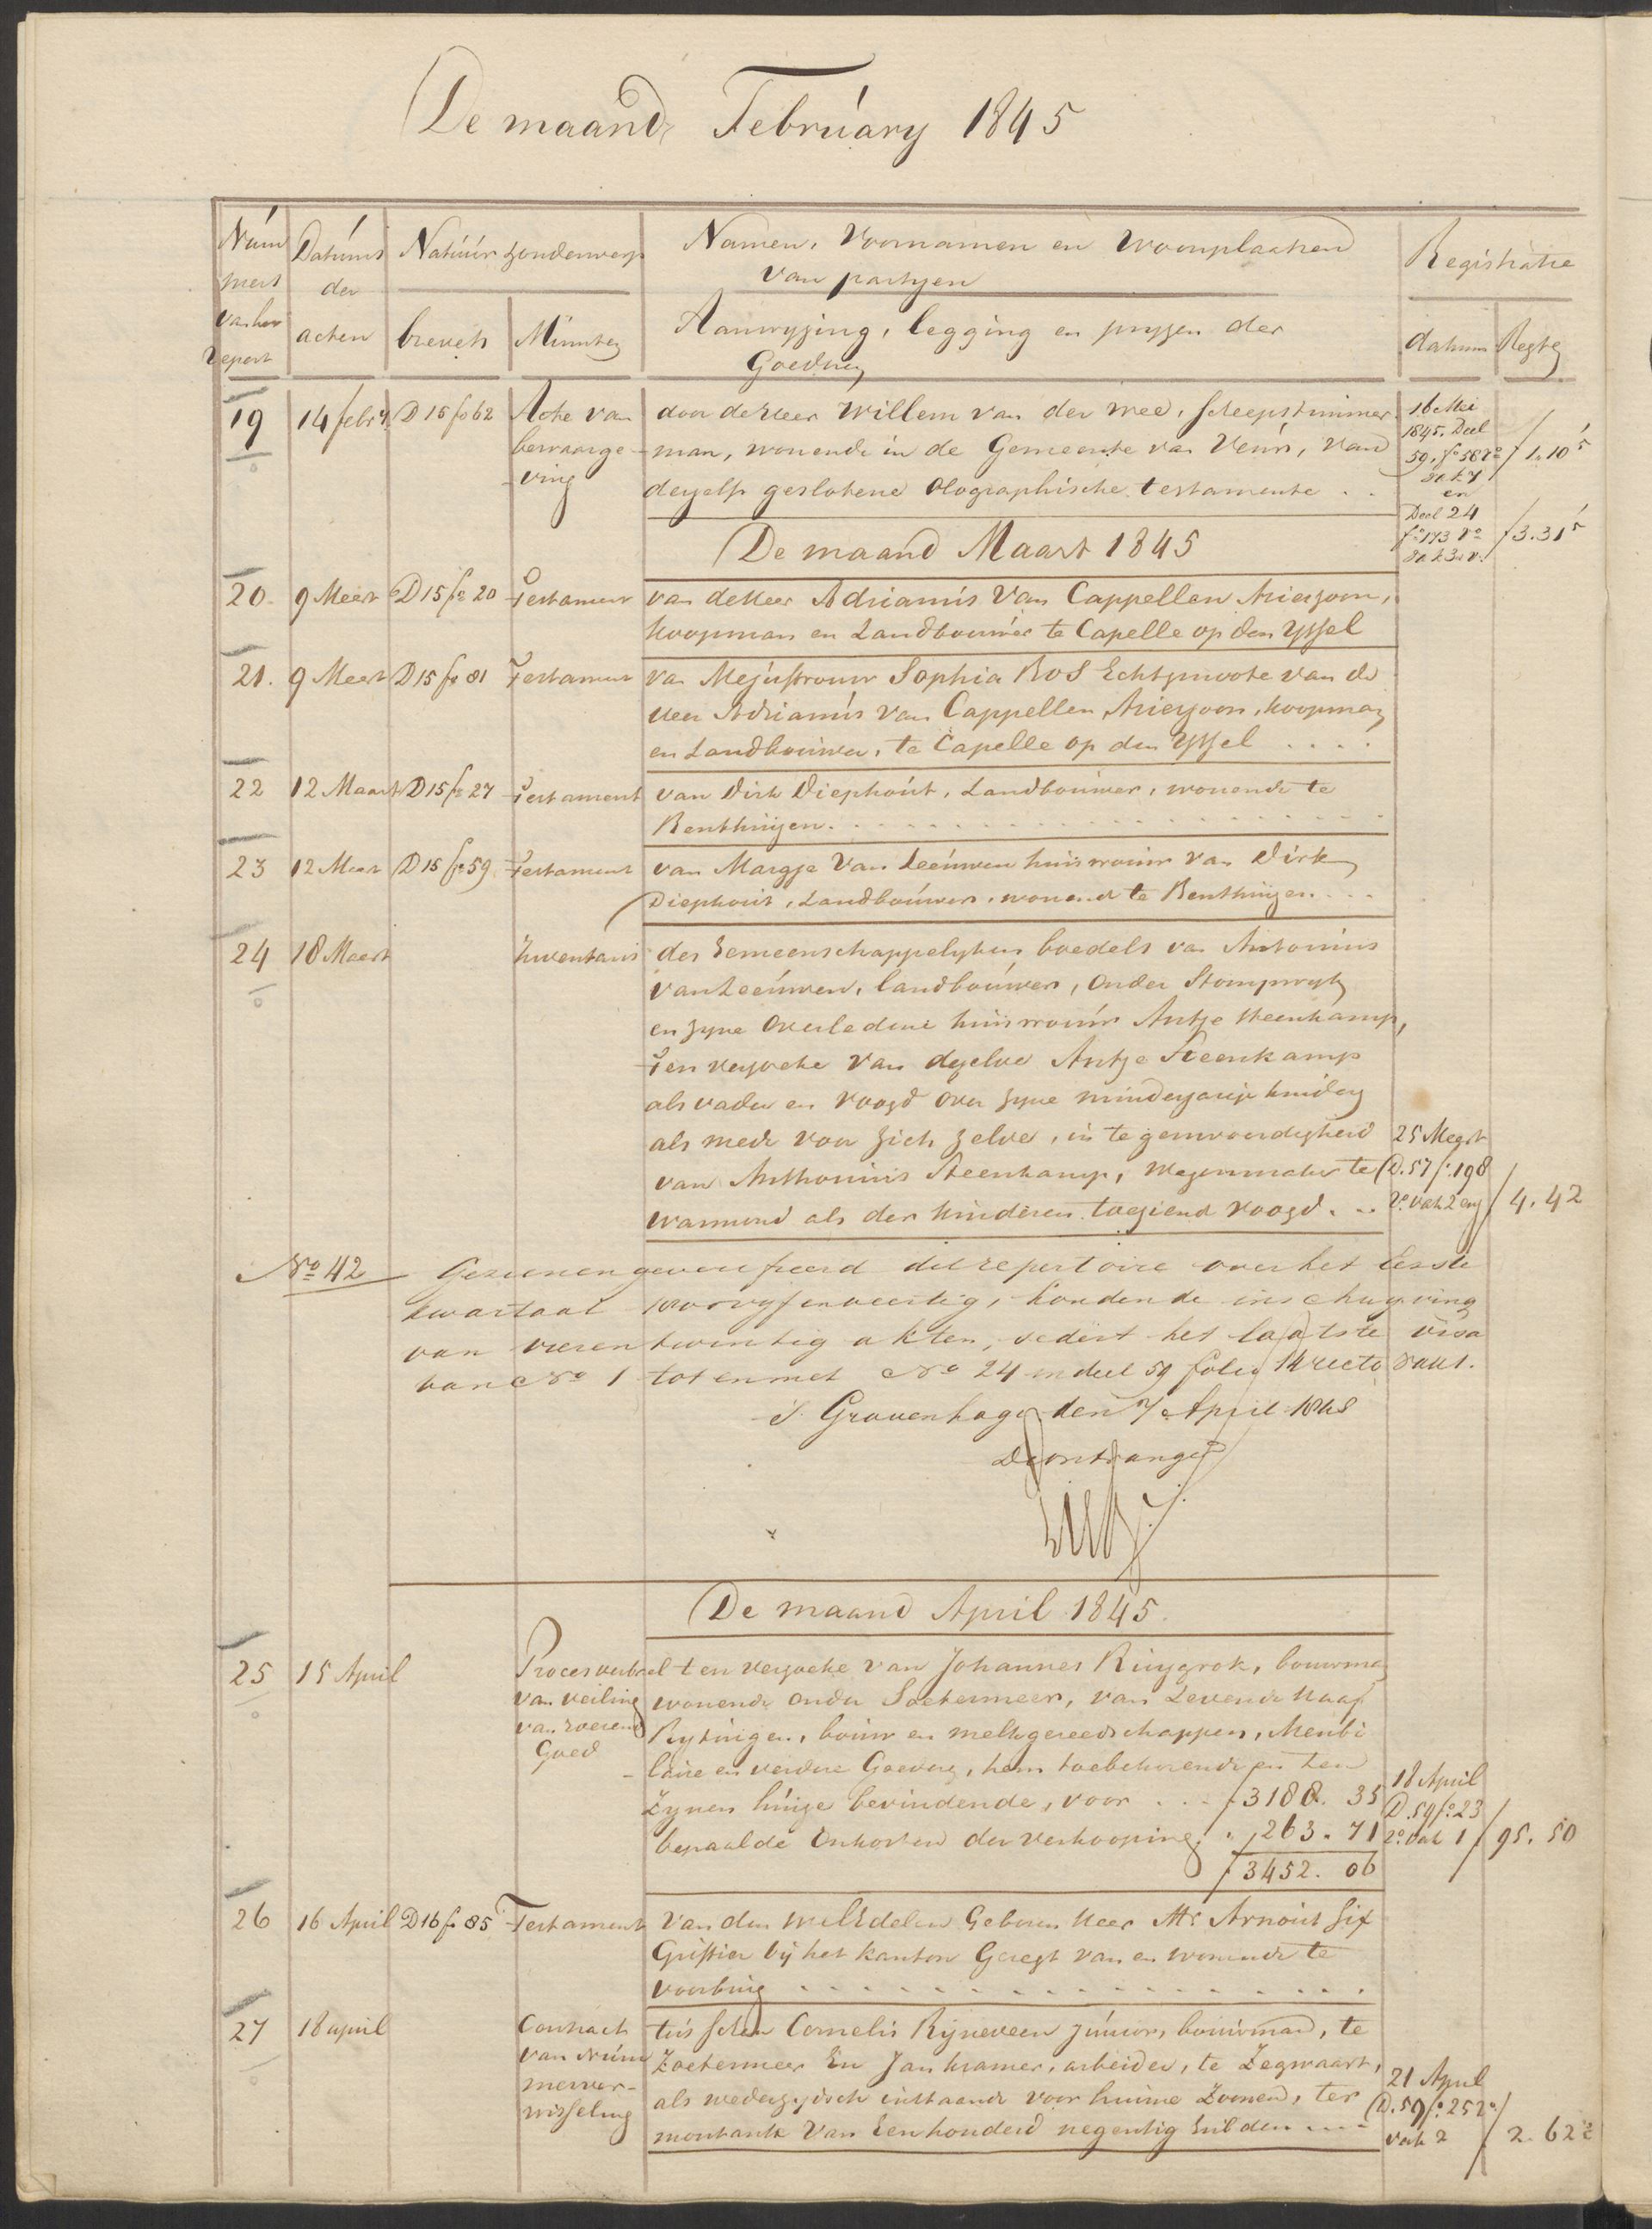 De maand February 1845
Num
mers
van het
repert
Datums
der
acten
Natuur & onderwerp
brevets
Minuten
Namen, Voornamen en Woonplaatsen
van partyen
Aanwyzing, legging en pryzen der
Goederen
Registratie
datum
Regte
19 14 febry D 15 fo 62 Acte van door de Heer Willem van der Mee, scheepstimmer 16 Mei
bewaarge- man, wonende in de Gemeente van Veur, van 1845. Deel
ving dezelfs geslotene Olographische testamente . . 59. fo 58 ro f 1.10 5
en
Deel 24
fo 173 vo f 3.31 5
De maand Maart 1845
20. 9 Meert D 15 fo 20 Testament van de Heer Adrianus van Cappellen Arieszoon,
koopman en Landbouwer te Capelle op den Yssel
21. 9 Meert D 15 fo 81 Testament van Mejuffrouw Sophia Bos Echtgenoote van de
Heer Adrianus van Cappellen Arieszoon, koopman
en Landbouwer, te Capelle op den Yssel . . . .
22 12 Maart D 15 fo 27 Testament van Dirk Diephout, Landbouwer, wonende te
Benthuizen. . . .
23 12 Meert D 15 fo 59 Testament van Margje van Leeuwen huisvrouw van Dirk
Diephout, Landbouwer, wonend te Benthuizen . . .
24 18 Meert Inventaris des Gemeenschappelyken boedels van Antonius
van Leeuwen, landbouwer, Onder Stompwyk
en zyne Overledene huisvrouw Antje Steenkamp,
Ten verzoeke van dezelve Antje Steenkamp
als vader en voogd over zyne minderjarige kinderen
als mede voor zich zelve, in tegenwoordigheid 25 Meert
van Anthonius Steenkamp, Wagenmaker te D. 57 fo 198
Warmond als der kinderen toeziend voogd . . vo. vak 2 en f 4.42
No 42 Gezien en geverifieerd dit repertoire over het eerste
kwartaal 1800 vyf en veertig, houdende inschryving
van vier en twintig akten, sedert het laatste visa
van No 1 tot en met No 24 in deel 59 folio 14 recto vak 1.
's Gravenhage den 7 April 1845
De ontvanger
De maand April 1845.
25 15 April Proces verbaal ten verzoeke van Johannes Ruygrok, bouwman
van veiling wonende onder Soetermeer, van Levende Haaf
van roerend Rytuigen, bouw en melkgereedschappen, Meubi
Goed - laire en verdere Goederen, hem toebehoorende en ten
Zynen huize bevindende, voor . . . f 3188. 35 18 April
bepaalde Onkosten der verkooping . " 263. 71 D. 59 fo. 23
f 3452. 06 vo. vak 1 f 95. 50
26 16 April D 16 fo 85 Testament van den WelEdelen Geboren Heer Mr Arnout Six
Griffier bij het kanton Geregt van en wonende te
Voorburg . . . .
27 18 april Contract tusschen Cornelis Rijneveen junior, bouwman, te
van Num Zoetermeer En Jan Kramer, arbeider, te Zegwaart,
merver- als wederzydsch instaande voor hunne Zoonen, ter 21 April
wisseling montante van Een honderd negentig Gulden . . . . D. 59 fo. 25 vo.
vak 2 f 2. 62